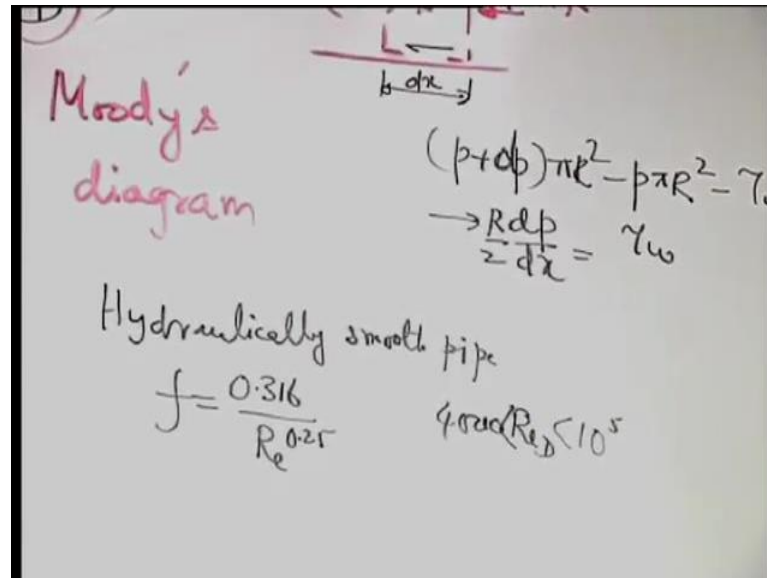 dx
Moody's
diagram
(p+dp)πR² - pπR² - τ
→ R/2 dp/dx = τw
Hydraulically smooth pipe
f = 0.316/Re^0.25
4000<Re_D<10⁵